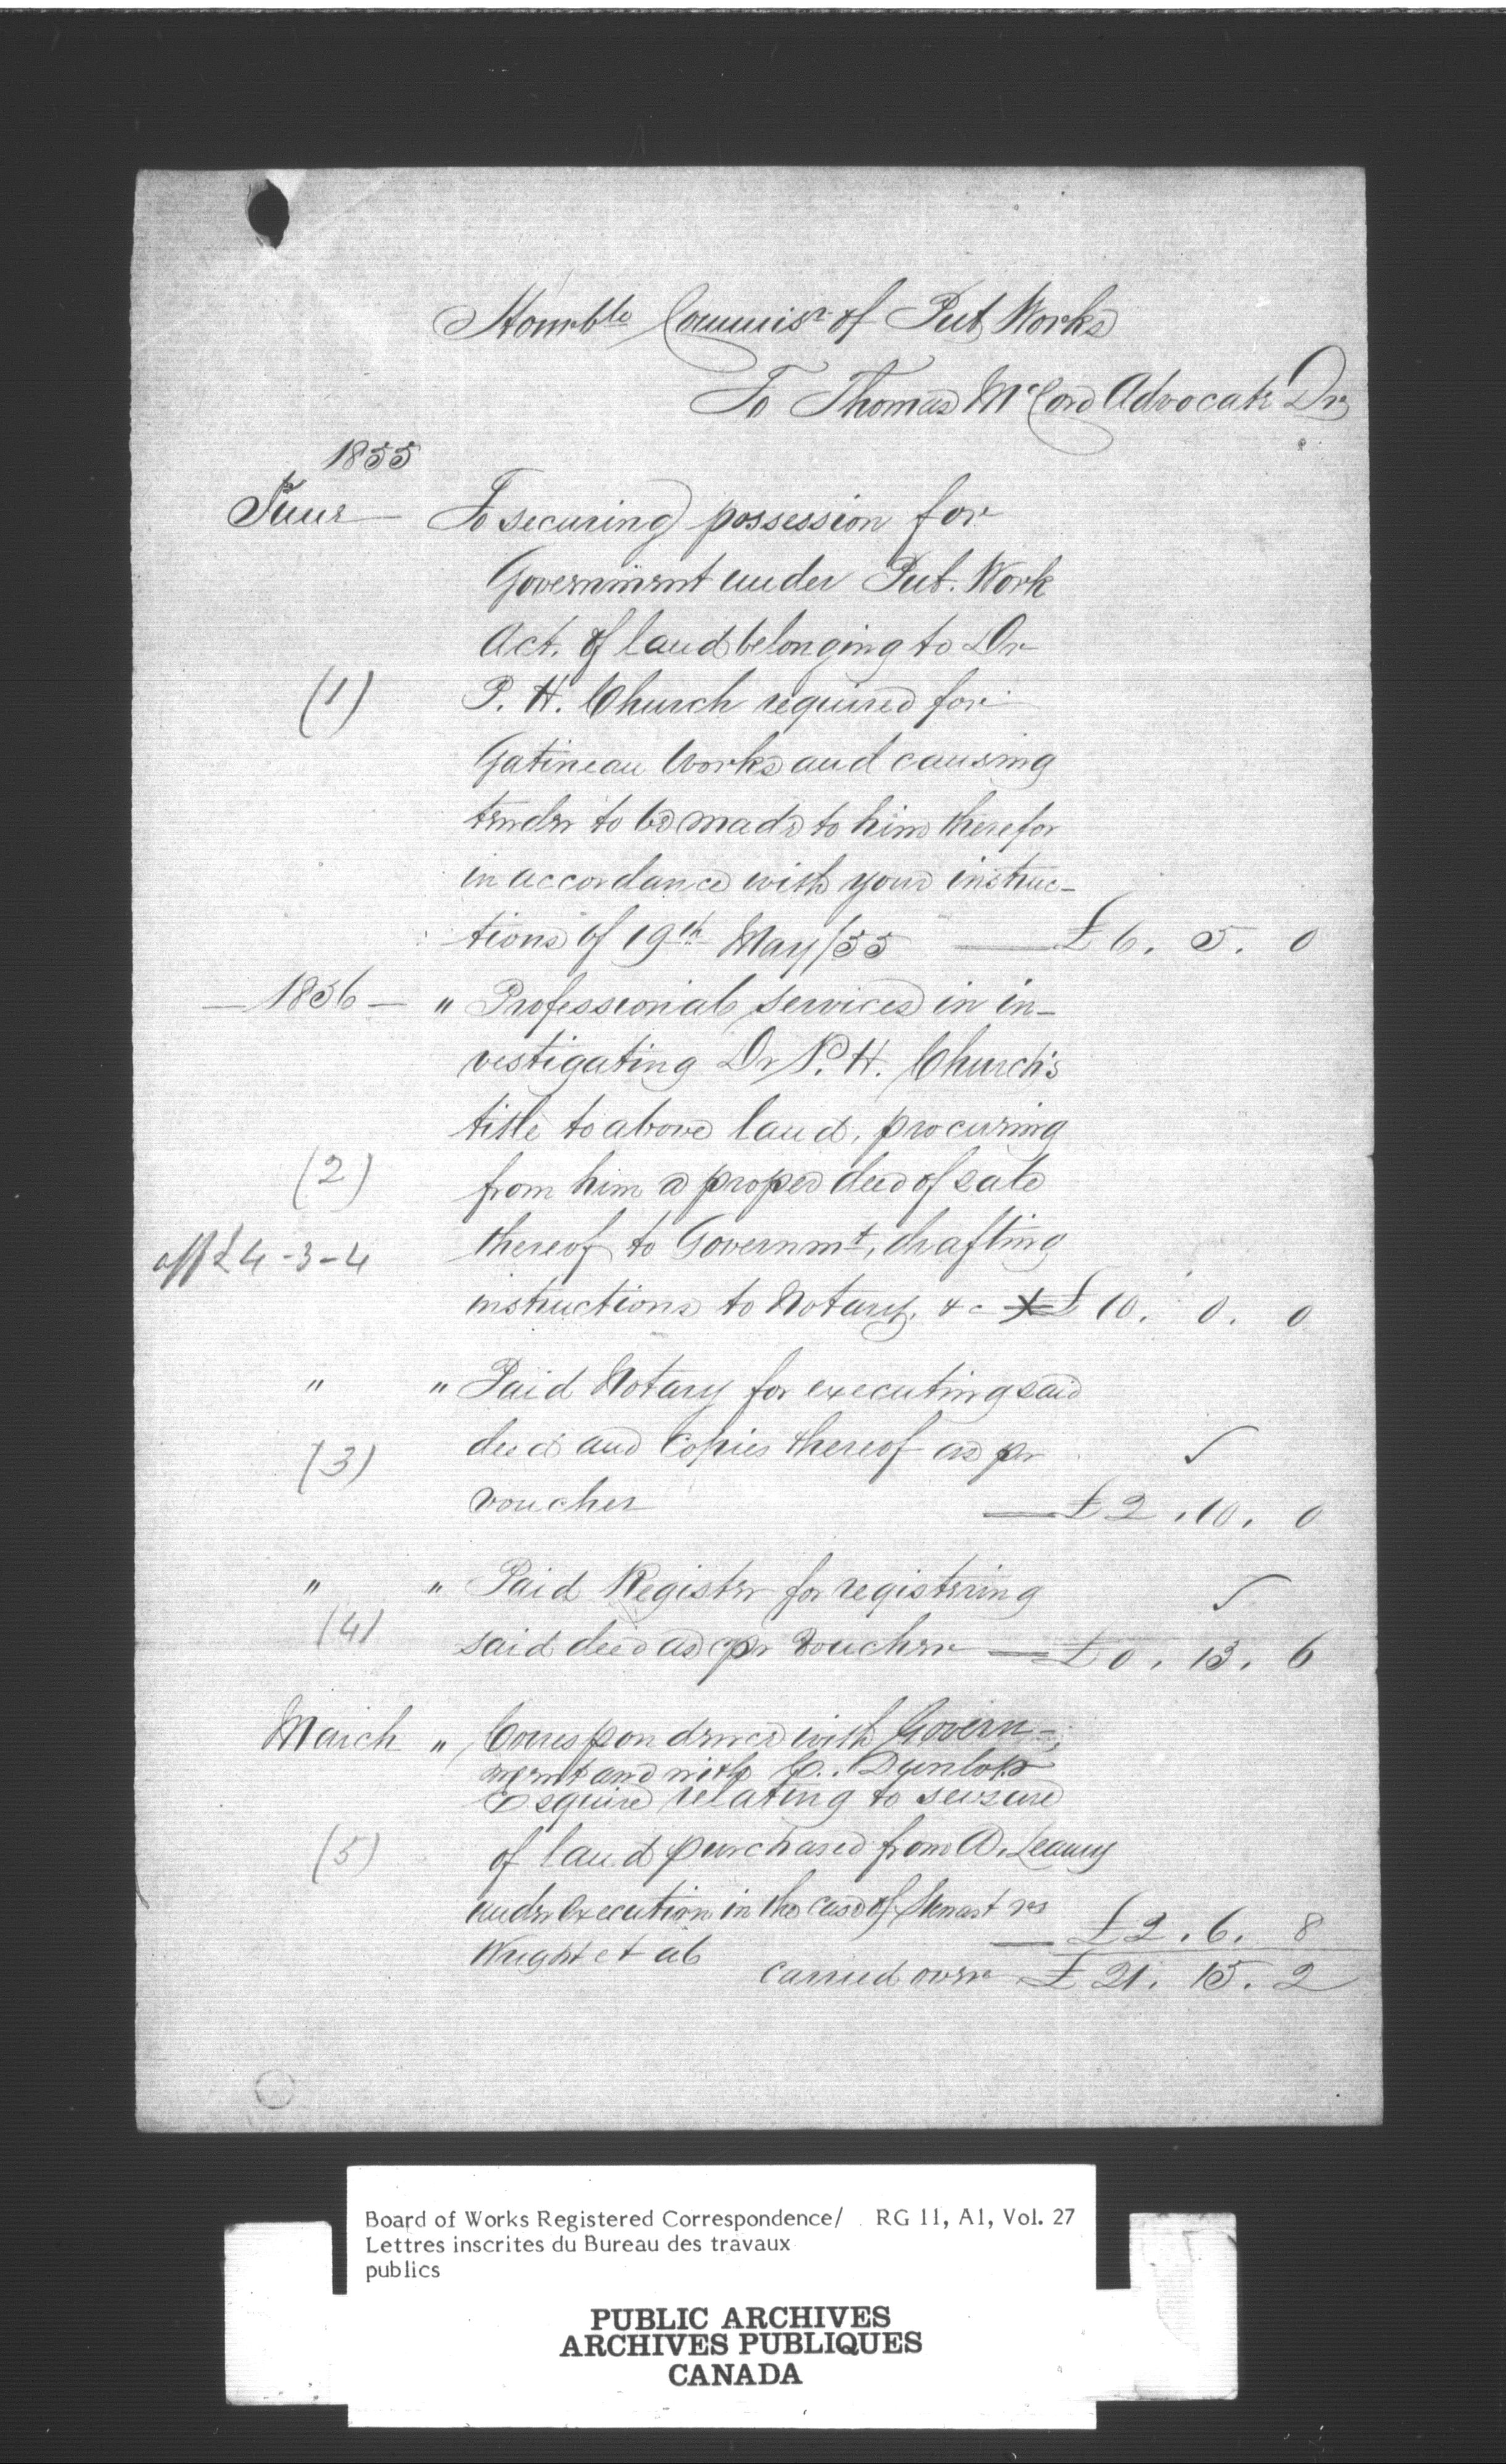 Honrble Commisr of Pub Works
To Thomas McCord Advocate Dr
1855
June To securing possession for
Government under Pub. Work
Act. of land belonging to Dr
(1) P. H. Church required for
Gatineau Works and causing
tender to be made to him therefor
in accordance with your instruc-
tions of 19th May/55 — £6. 5. 0
— 1856 — " Professional services in in-
vestigating Dr P. H. Church's
title to above land, procuring
(2) from him a proper deed of sale
thereof to Governmt, drafting
off £4-3-4
instructions to Notary, &c £10. 0. 0
" " Paid Notary for executing said
(3) deed and Copies thereof as pr ✓
voucher — £2. 10. 0
" " Paid Register for registering ✓
(4) said deed as pr voucher — £0. 13. 6
March " Correspondence with Govern-
ment and with C. Dunlop
Esquire relating to seizure
(5) of land purchased from A. Leamy
under Execution in the case of vs
Wright et al — £2. 6. 8
carried over £21. 15. 2
Board of Works Registered Correspondence/ RG 11, A1, Vol. 27
Lettres inscrites du Bureau des travaux
publics
PUBLIC ARCHIVES
ARCHIVES PUBLIQUES
CANADA